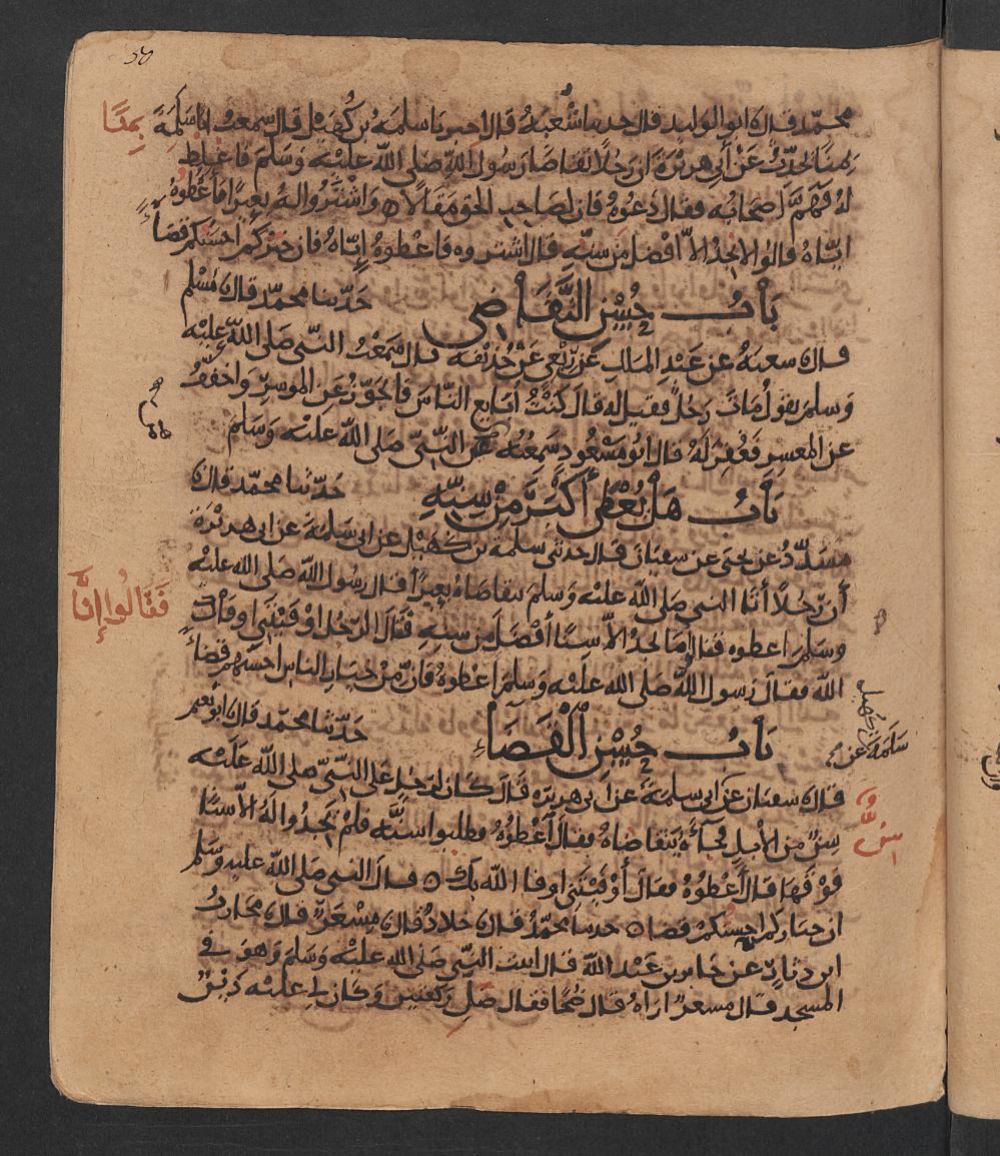 ٥٧
محمد قال نا ابو الوليد قال حدثنا شُعبَةُ قال اخبرنا سلمة بن كُهَيْل قال سمعت ابا سَلَمَةَ
بِمنًا
بِمنًا يحدّث عَنْ أَبي هريْرَة ان رَجُلًا تقاضا رَسُول اللهِ صَلى اللّه عليْه وَسَلمَ فاغلظ
لهُ فَهَمَّ اَصْحَابُه فقال دَعُوهُ فان لصَاحِبِ الحق مَقَالًا ٥ وَاشْتَرُوا لهُ بَعِيرًا فأعْطُوهُ
ايّاهُ قالوا لا نَجِدُ الاّ افْضل مِن سنّه قال اشتروه فاعطوهُ إيّاهُ فان خيْرَكم احسَنكم قضاءً
بَابُ حُسْنِ التَّقَاضِى
حَدّثنا محمّد قال نا مُسْلم
قال نا شعبهُ عن عَبْدِ المَلكِ عَنْ رِبْعِي عَنْ حُذيْفَه قال سَمعْتُ النّبى صَلى اللّه عليْه
وَسَلم يقولُ مَاتَ رَجُلٌ فقيل له قالَ كنْتُ ابَايع النّاسَ فاتجَوّز عَن الموسِرِ واخفّفُ
عن المعسِرِ فَغُفِرَ لَهُ قال ابُو مَسْعُودٍ سَمِعْتُه عن النّبيّ صَلى اللّه عليْه وَسَلم
بَابُ هَل يُعْطى أكْثَرَ مِنْ سِنّهِ
حَدّثنا محمّد قال نا
مسَدّدُ عن يحيى عن سفيان قال حدثنى سلمَة بن كُهَيْلٍ عن ابى سَلمَة عن ابى هريْرَة
أن رَجُلًا أتَا النبى صَلى اللّه عليْه وَسَلم يتقاضَاهُ بَعِيرًا فقال رسُول اللّه صَلى اللّه عليْه
وسَلمَ اعطوه فقالوا مَا نجدُ الاّ سنًا أفْضلَ مِن سنه فقالَ الرّجُل اوْفيْتَنِي اوفاك
فَقَالُوا إنّا
اللّه فقال رَسول اللّه صَلى الله عليْه وَسَلمَ اعطوهُ فان مِنْ خيَار الناس احسَنهم قضاءً
بَابُ حُسْنِ الْقَضَاءِ
حَدّثنا محمّد قال نا ابو نعيم
سَلمَة عن
قال نا سفيان عن ابى سلمَةَ عن أبى هريرَه قَالَ كَان لرَجُلٍ عَلى النّبيّ صَلى اللّه عليْه
سِنٌّ
سِنٌّ مِن الأبل فجآءَهُ يَتقاضاهُ فقال أعْطُوْهُ فطلبوا سنّه فلمْ نَجِدُوا لهُ الاّ سنًا
فوْقهَا قال أَعْطُوْهُ فقالَ أَوْفيْتَنِي اوفا اللّه بك ٥ قالَ النبى صَلى اللّه عليه وَسَلم
ان خياركم احسنكم قضا ٥ حدثنا محمّدٌ قال نا خلادٌ قال نا مِسْعَرٌ قال نا محاربُ
ابن دثارٍ عن جَابر بن عَبْد اللّهِ قال اتيت النّبي صَلى الله عليْه وَسَلم وَهوَ فى
المسجد قال مسعرٌ اراهُ قال ضُحًا فقال صَلِّ ركعتين وَكان لى عليْه دَيْنٌ